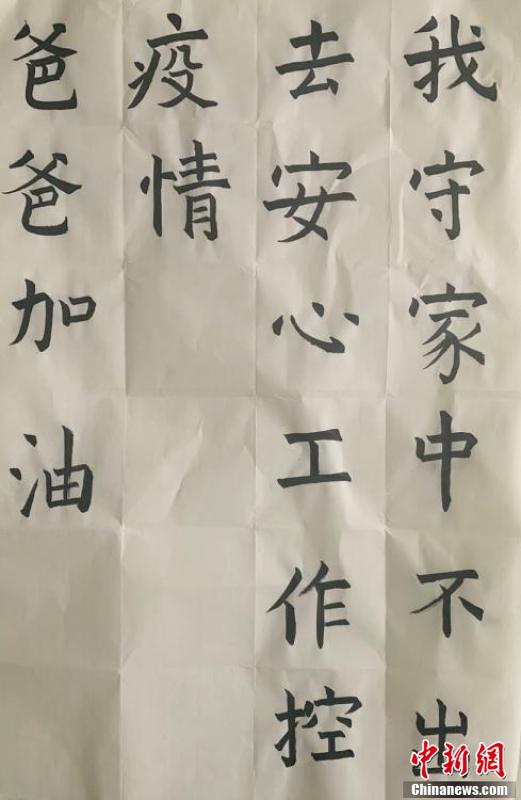 我守家中不出
去安心工作控
疫情
爸爸加油
中新网
Chinanews.com